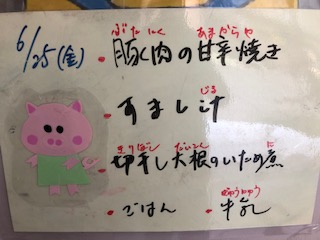 6/25(金)
ぶたにく あまからや
・豚肉の甘辛焼き
じる
・すまし汁
きりぼし だいこん に
・切干し大根のいため煮
ぎゅうにゅう
・ごはん ・牛乳